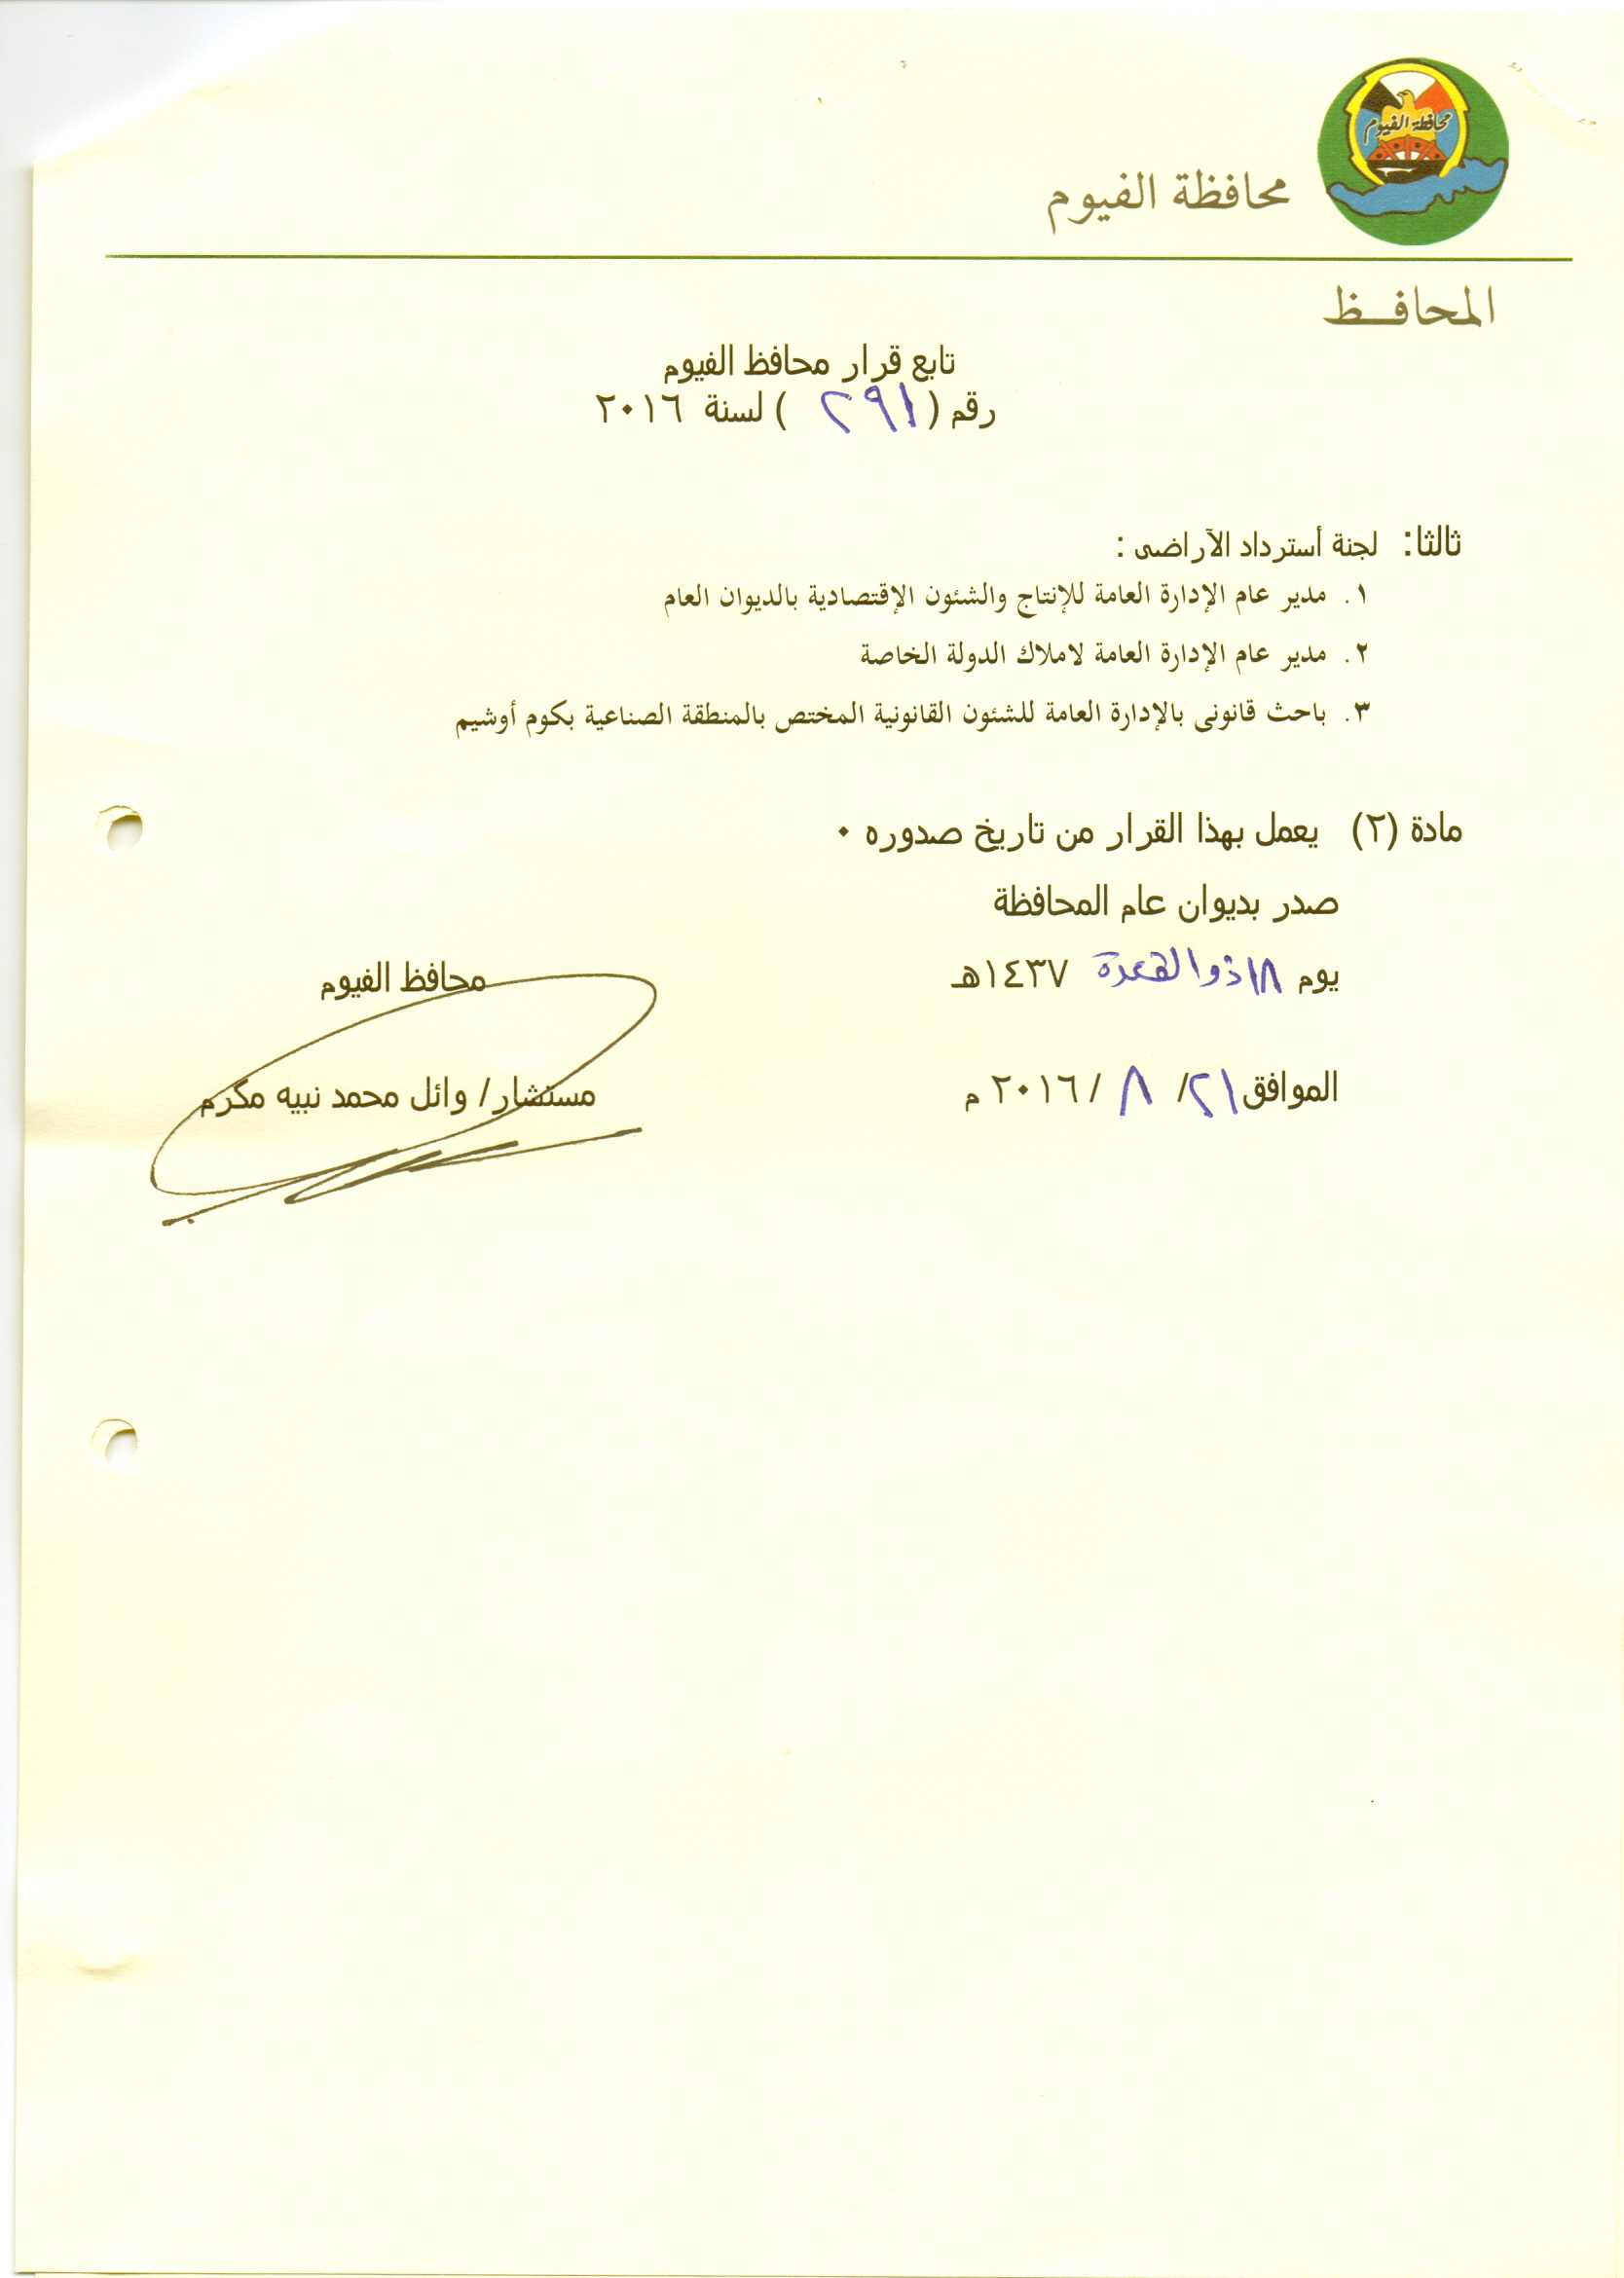 محافظة الفيوم
محافظة الفيوم
المحافـــظ
تابع قرار محافظ الفيوم
رقم ( ٢٩١ ) لسنة ٢٠١٦
ثالثا: لجنة أسترداد الآراضى :
١. مدير عام الإدارة العامة للإنتاج والشئون الإقتصادية بالديوان العام
٢. مدير عام الإدارة العامة لاملاك الدولة الخاصة
٣. باحث قانونى بالإدارة العامة للشئون القانونية المختص بالمنطقة الصناعية بكوم أوشيم
مادة (٢) يعمل بهذا القرار من تاريخ صدوره ٠
صدر بديوان عام المحافظة
يوم ١٨ ذو القعدة ١٤٣٧هـ
الموافق ٢١/ ٨ / ٢٠١٦ م
محافظ الفيوم
مستشار/ وائل محمد نبيه مكرم